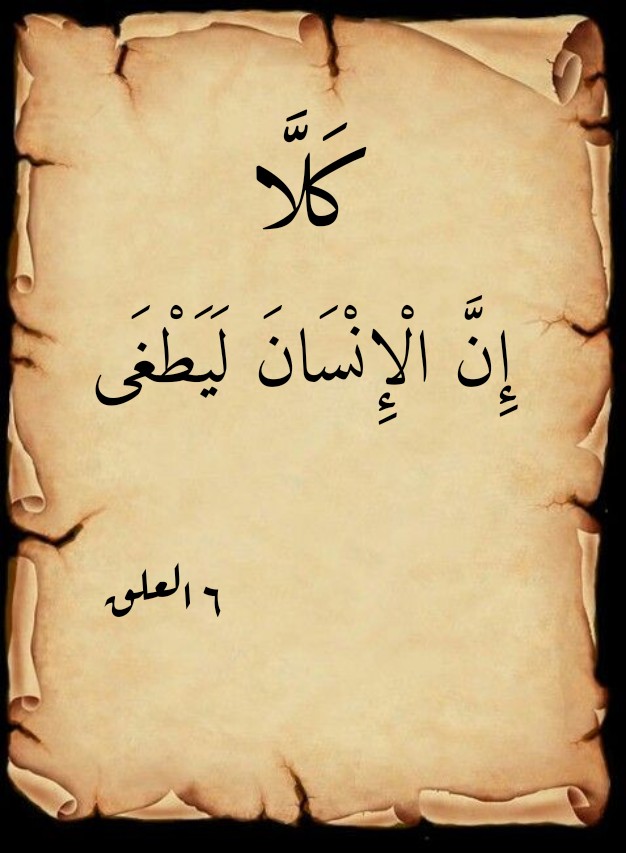 كَلَّا
إِنَّ الْإِنْسَانَ لَيَطْغَى
٦ العلق